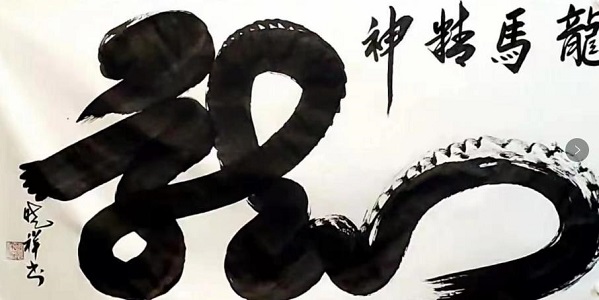 龍馬精神
龍
晓祥书